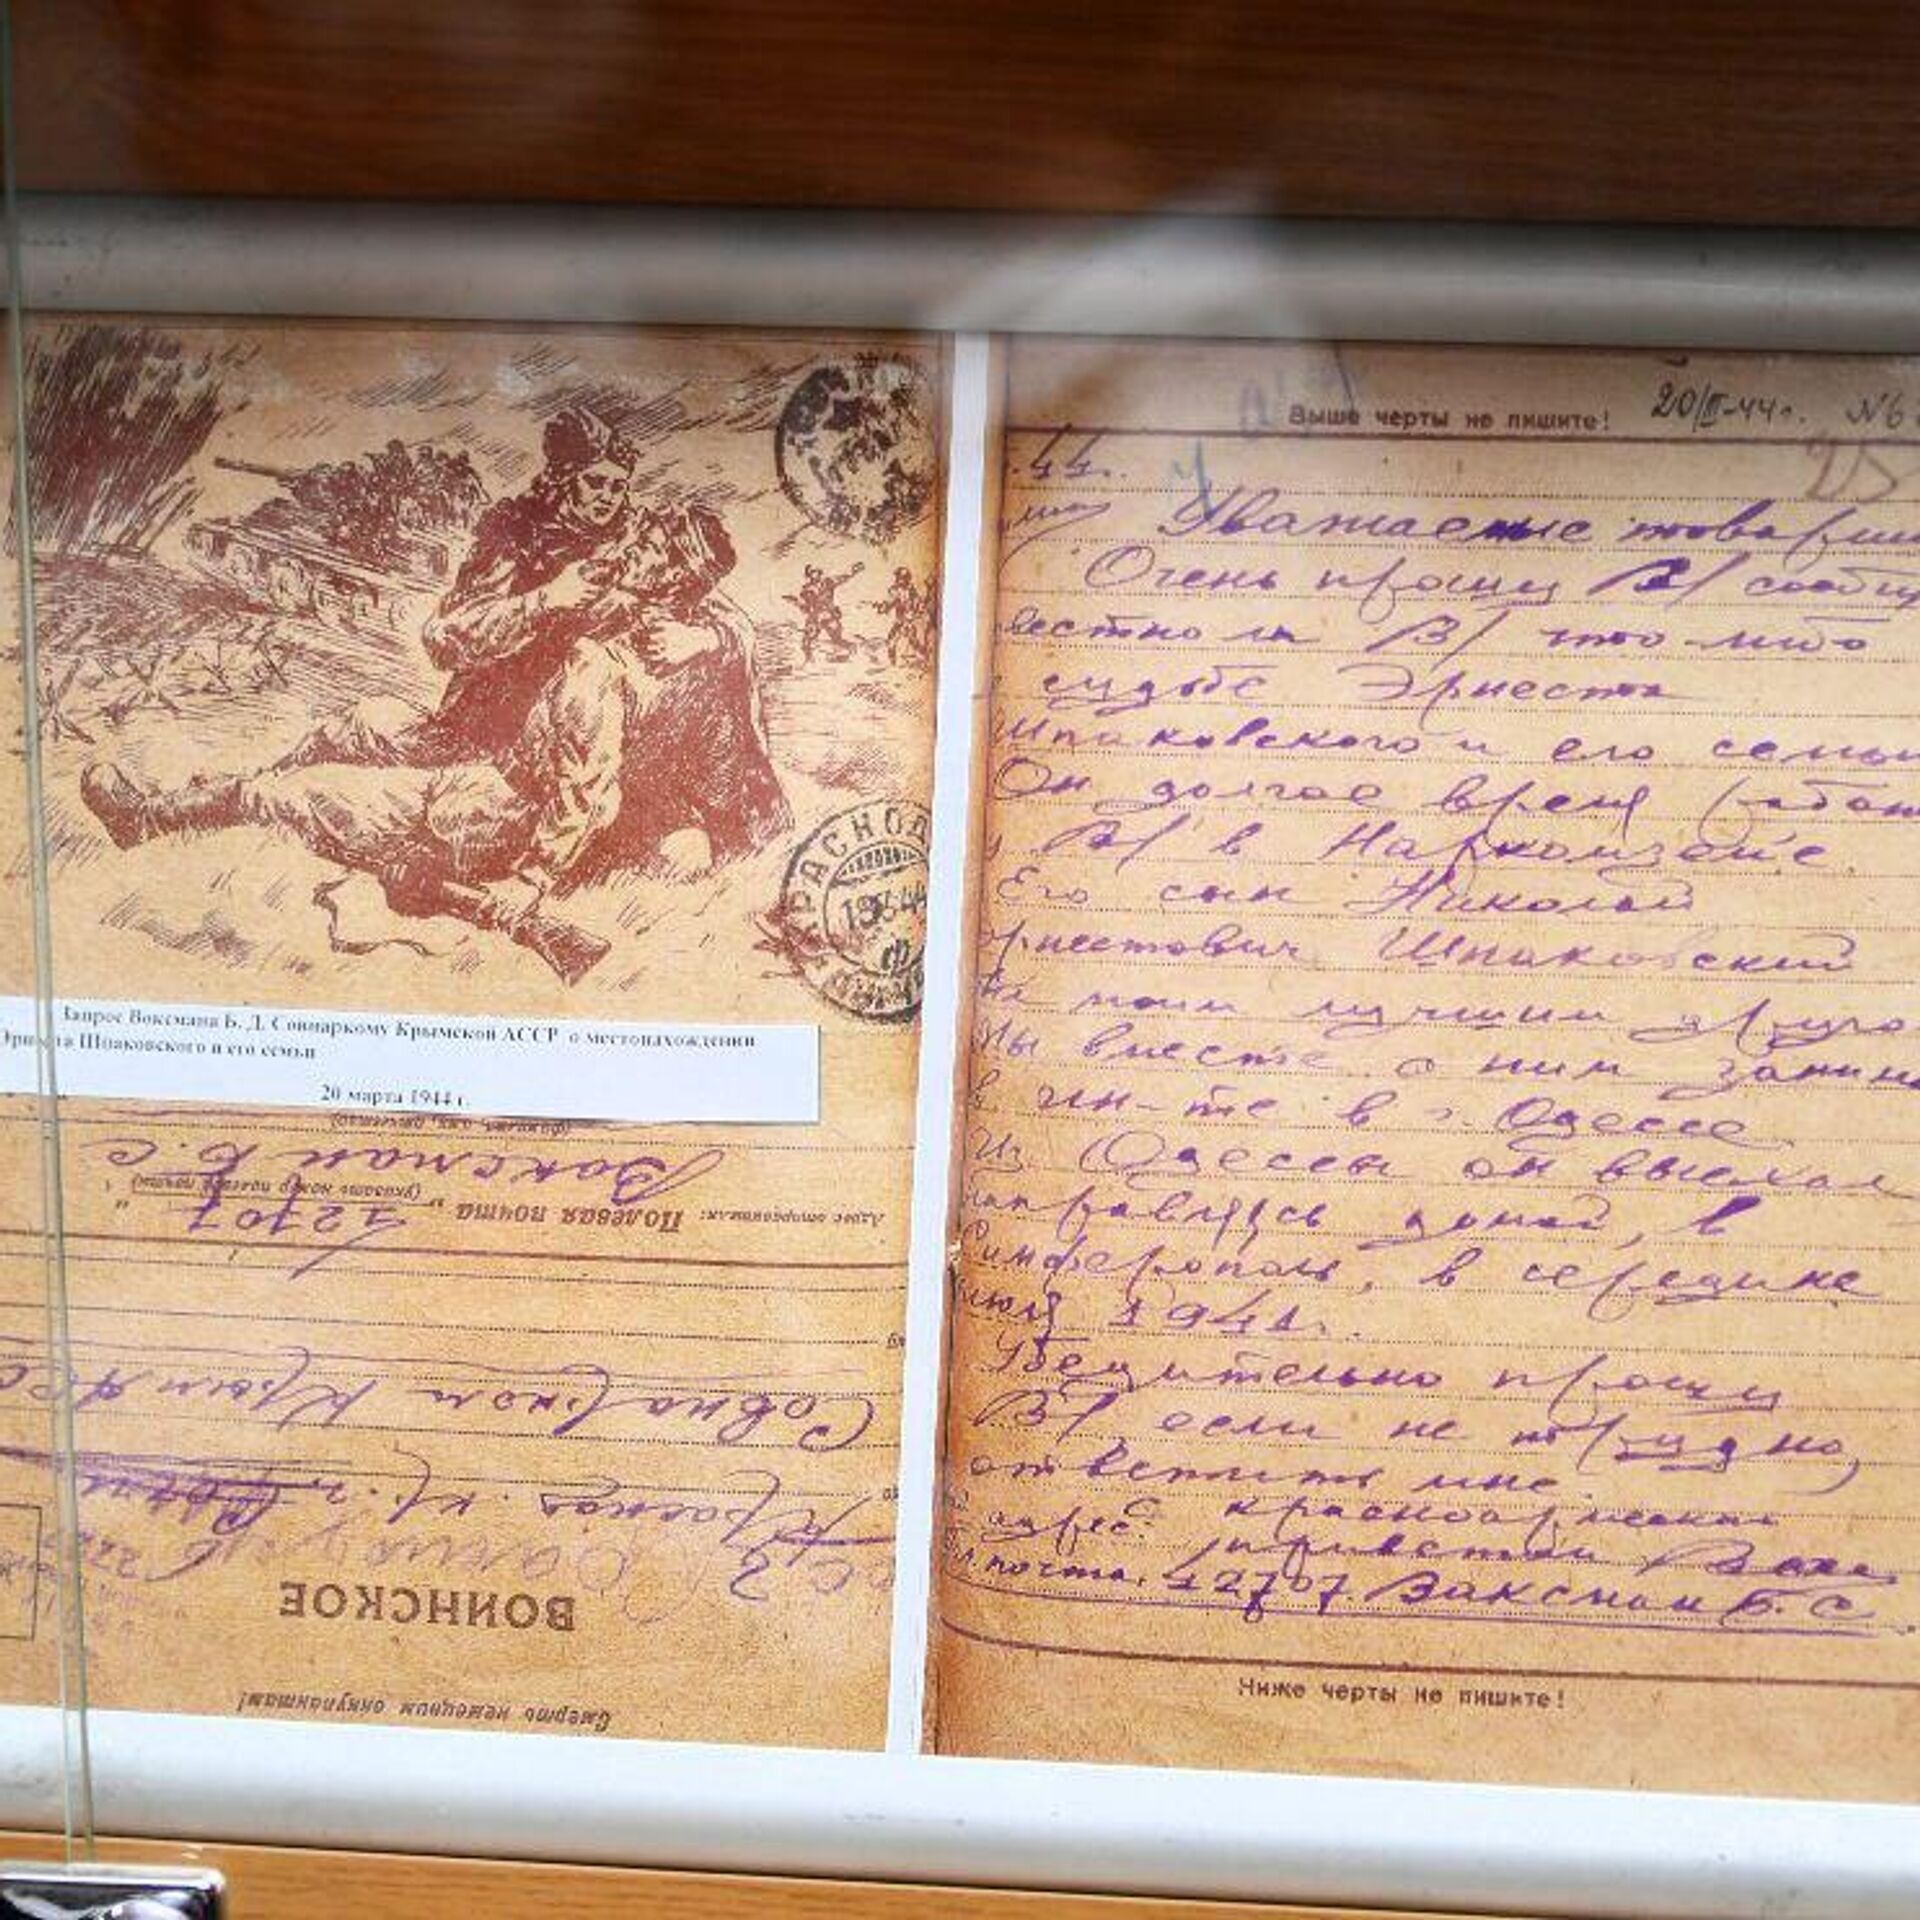 КРАСНОД
18344
Ф
Запрос Воксмана Б. Д. Совнаркому Крымской АССР о местонахождении
Эрнеста Шпаковского и его семьи
20 марта 1944 г.
(фамилия, имя, отчество)
Ваксман Б. С
(указать номер полевой почты)
Адрес отправителя: Полевая почта „ 42707 “
Совнарком Крым АСС
Красная кр.
ВОИНСКОЕ
Смерть немецким оккупантам!
Выше черты не пишите!
20/III-44 г. №6
.44г.
Уважаемые товарищи
Очень прошу В/ сообщ
вестно ли В/ что-либо
судьбе Эрнеста
Шпаковского и его семьи
Он долгое время работ
у В/ в Наркомземе.
Его сын Николай
Эрнестович Шпаковский
моим лучшим друго
Мы вместе с ним занима
в ин-те в г. Одессе
Из Одессы он выехал
направляясь домой, в
Симферополь, в середине
июля 1941 г.
Убедительно прошу
В/ если не трудно,
ответить мне.
адрес: красноармейским
приветом Вакс
почта. 42707. Ваксман Б. С.
Ниже черты не пишите!